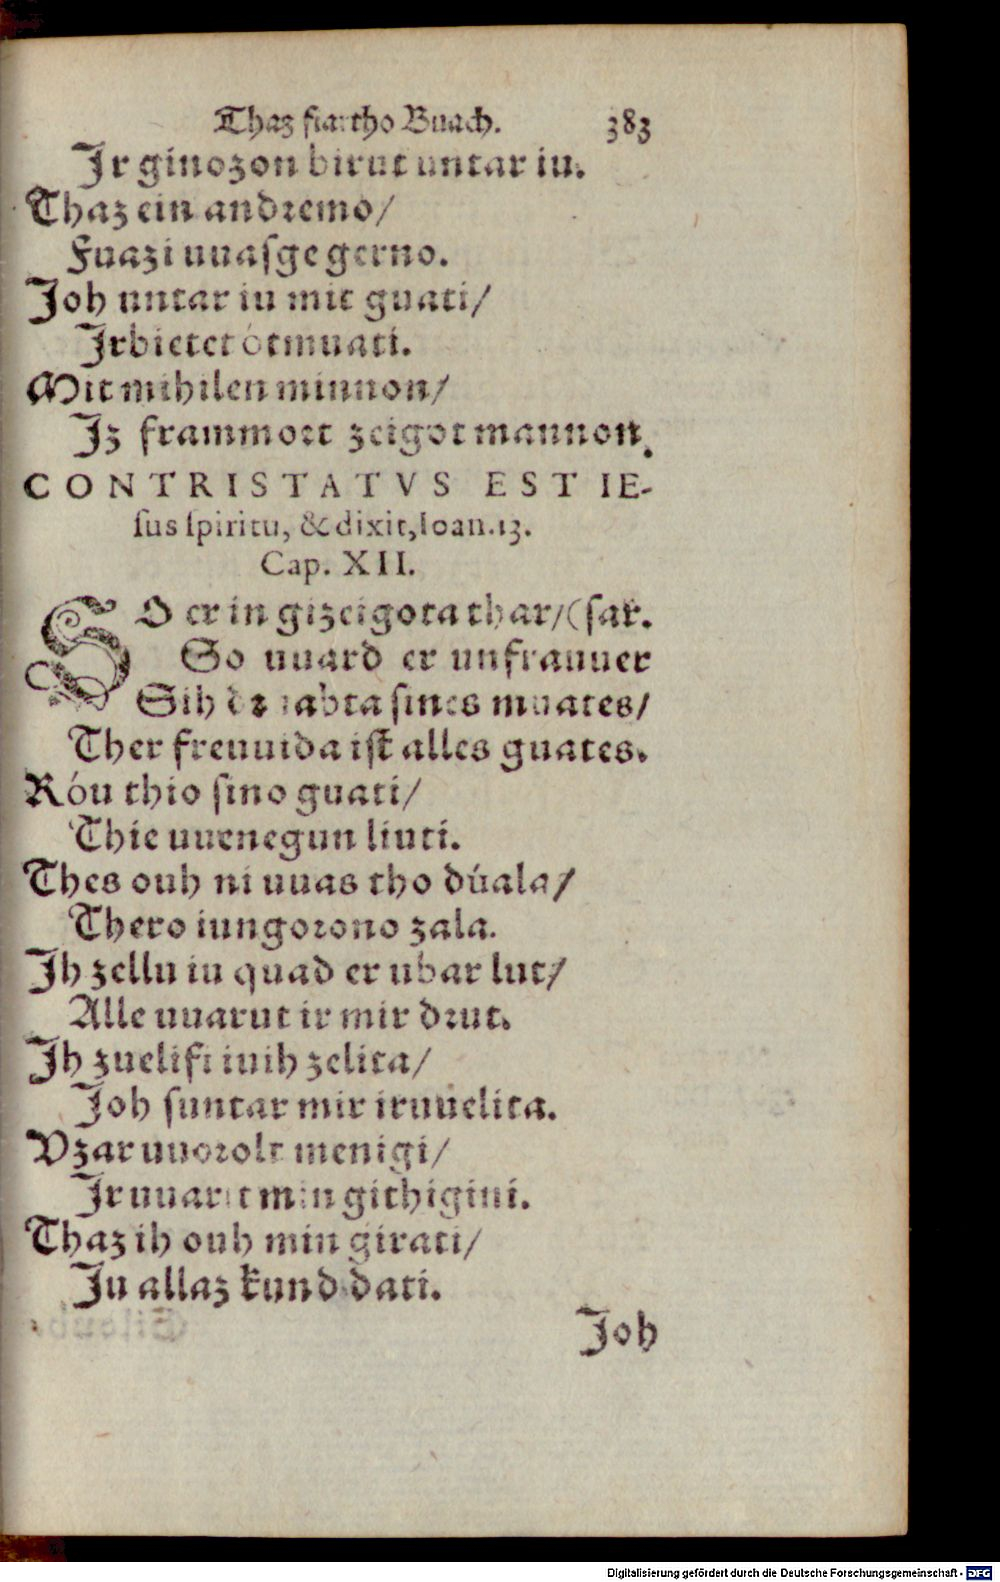 Thaz fiartho Buach. 383
Jr ginozon birut untar iu.
Thaz ein andremo/
Fuazi uuasge gerno.
Joh untar iu mit guati/
Jrbietet ótmuati.
Mit mihilen minnon/
Jz frammort zeigot mannon.
CONTRISTATVS EST IE-
sus spiritu, & dixit, Ioan. 13.
Cap. XII.
SO er in gizeigota thar/ (sar.
So uuard er unfrauuer
Sih drabta sines muates/
Ther freuuida ist alles guates.
Róu thio sino guati/
Thie uuenegun liuti.
Thes ouh ni uuas tho dúala/
Thero iungorono zala.
Jh zellu iu quad er ubar lut/
Alle uuarut ir mir drut.
Jh zuelifi iuih zelita/
Joh suntar mir iruuelita.
Vzar uuorolt menigi/
Jr uuarut min githigini.
Thaz ih ouh min girati/
Ju allaz kund dati.
Joh
Digitalisierung gefördert durch die Deutsche Forschungsgemeinschaft - DFG